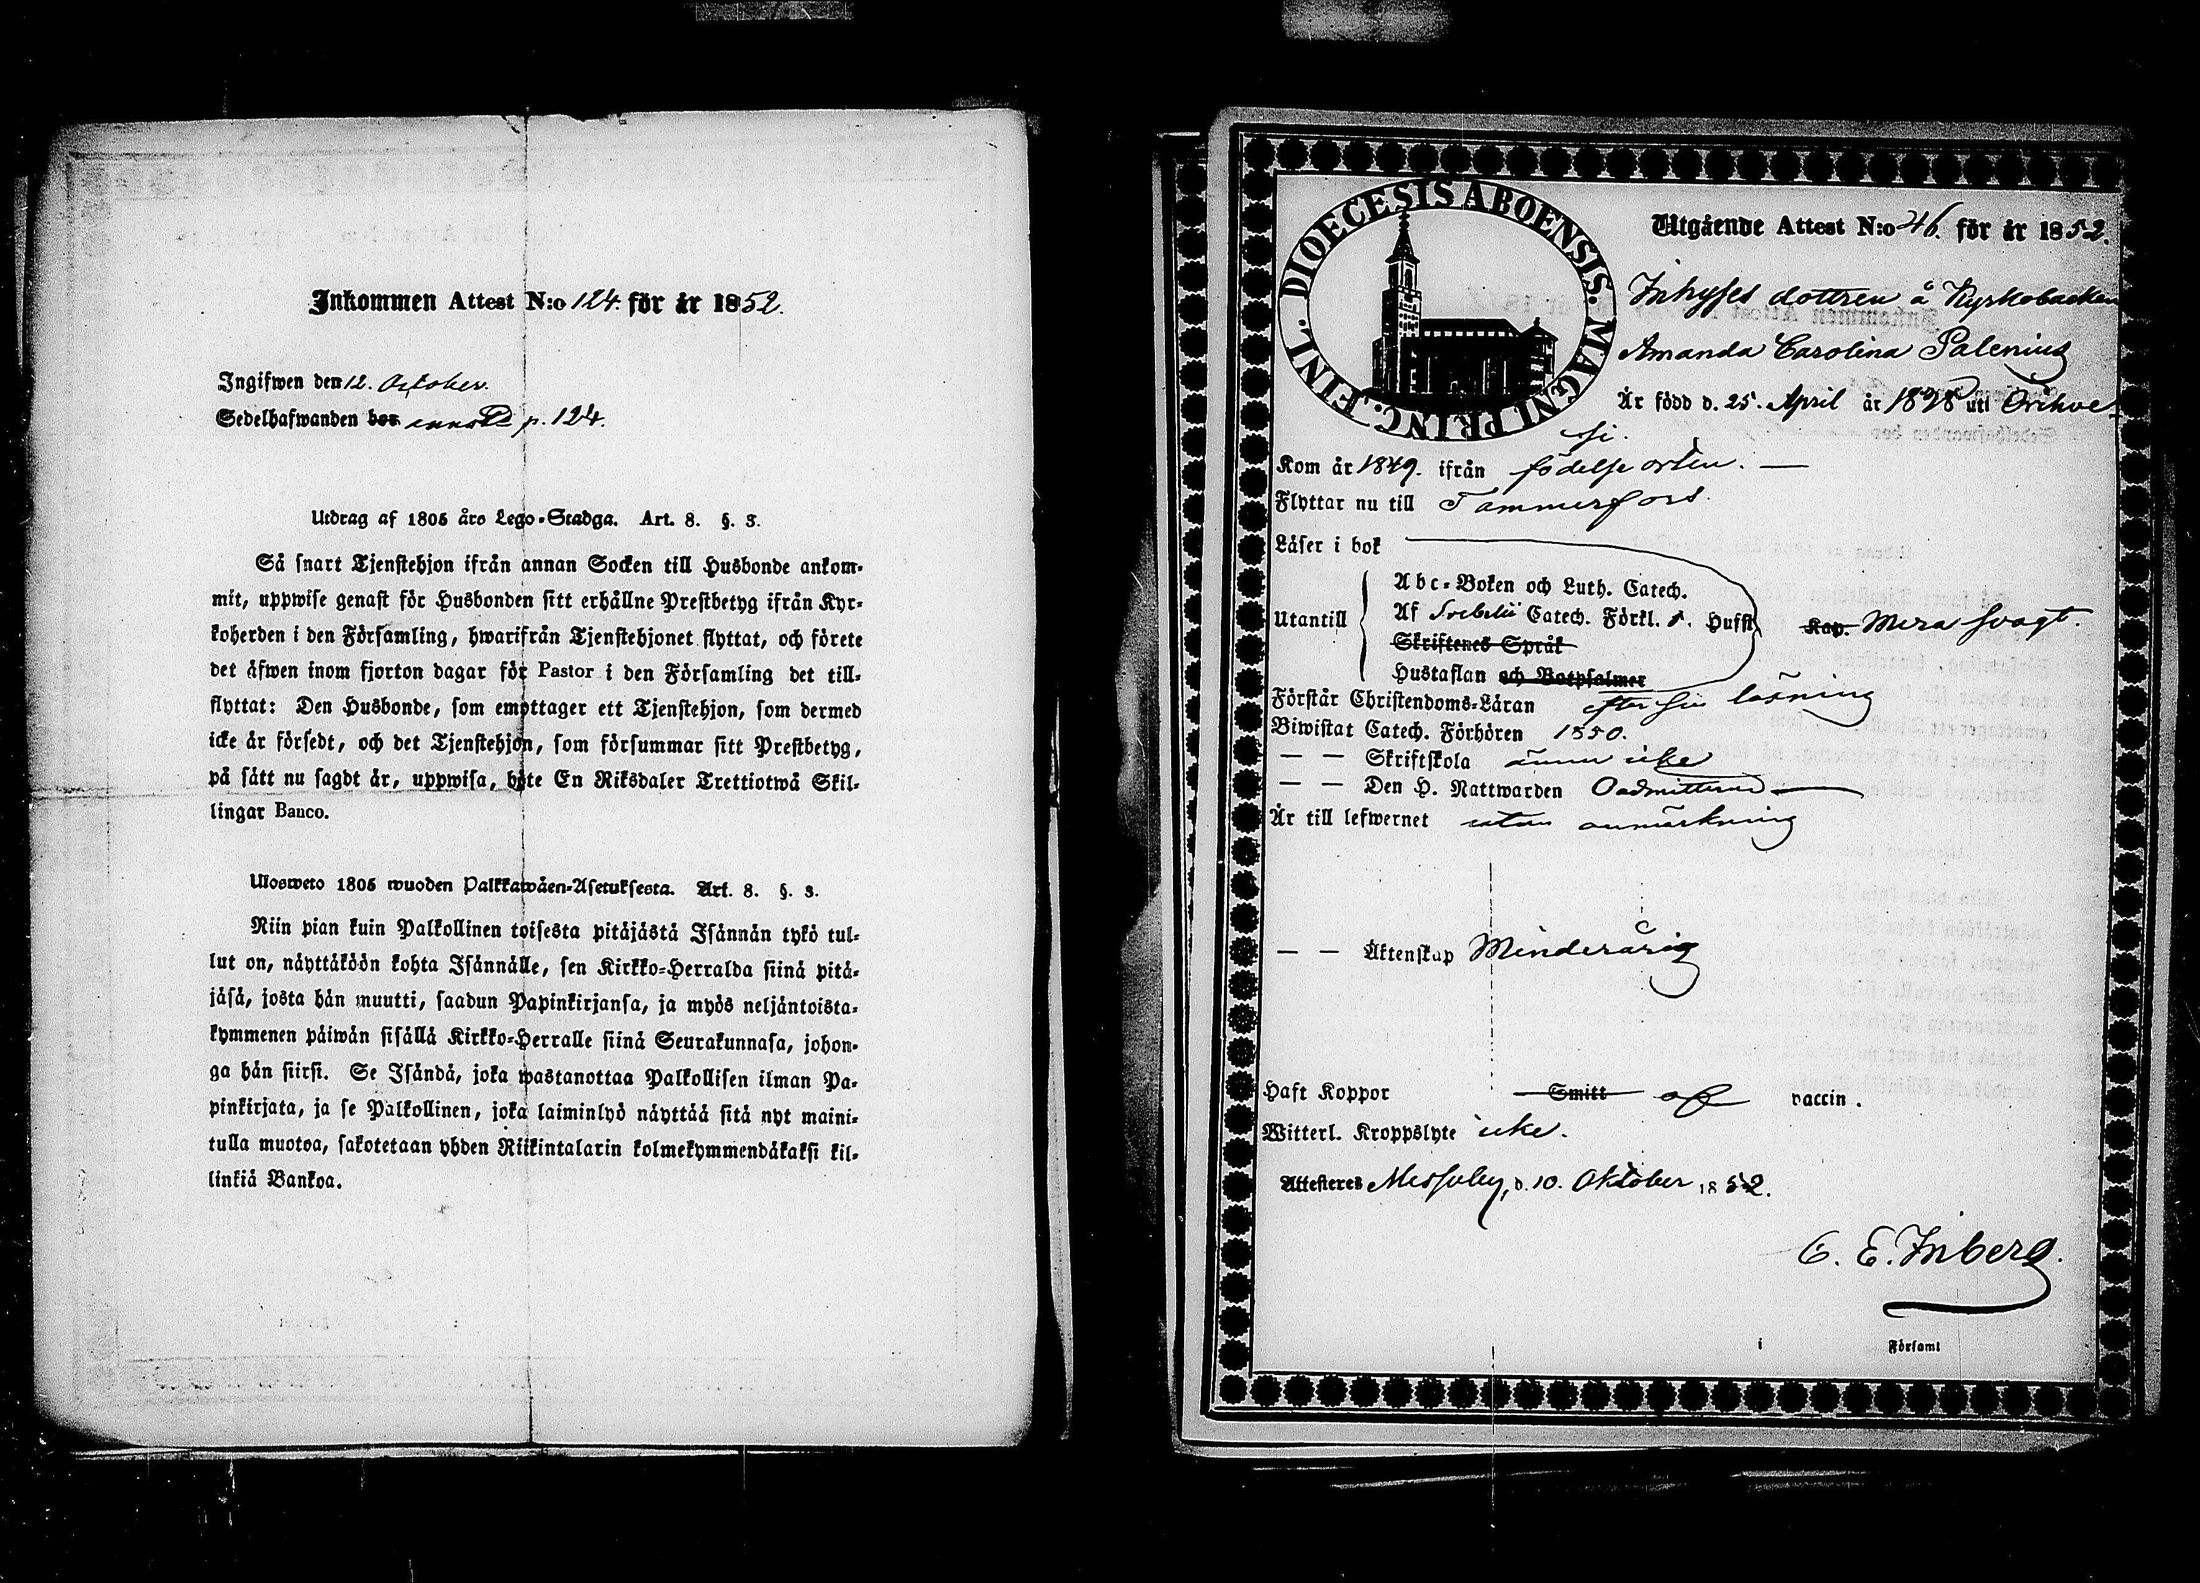 Inkommen Attest N:o 124. för år 1852.
Ingifwen den 12. October.
Sedelhafwanden bor p. 124.
Utdrag af 1805 års Lego-Stadga. Art. 8. §. 3.
Så snart Tjenstehjon ifrån annan Socken till Husbonde ankom-
mit, uppwise genast för Husbonden sitt erhållne Prestbetyg ifrån Kyr-
koherden i den Församling, hwarifrån Tjenstehjonet flyttat, och förete
det äfwen inom fjorton dagar för Pastor i den Församling det till-
flyttat: Den Husbonde, som emottager ett Tjenstehjon, som dermed
icke är försedt, och det Tjenstehjon, som försummar sitt Prestbetyg,
på sätt nu sagdt är, uppwisa, böte En Riksdaler Trettiotwå Skil-
lingar Banco.
Ulosweto 1805 wuoden Palkkawäen-Asetuksesta. Art. 8. §. 3.
Niin pian kuin Palkollinen toisesta pitäjästä Isännän tykö tul-
lut on, näyttäköön kohta Isännälle, sen Kirkko-Herralda siinä pitä-
jäsä, josta hän muutti, saadun Papinkirjansa, ja myös neljäntoista-
kymmenen päiwän sisällä Kirkko-Herralle siinä Seurakunnasa, johon-
ga hän siirsi. Se Isändä, joka wastanottaa Palkollisen ilman Pa-
pinkirjata, ja se Palkollinen, joka laiminlyö näyttää sitä nyt maini-
tulla muotoa, sakotetaan yhden Riikintalarin kolmekymmendäkaksi kil-
linkiä Bankoa.
DIOECESIS ABOENSIS. MAGNI PRINC. FINL.
Utgående Attest N:o 46. för år 1852.
Inhyses dottren å Kyrkobacken
Amanda Carolina Palenius
Är född d. 25. April år 1838 uti Orihve-
si.
Kom år 1849. ifrån födelse orten. —
Flyttar nu till Tammerfors
Läser i bok
Utantill
Abc-Boken och Luth. Catech.
Af Svebelii Catech. Förkl. 5. Hufst. Kap. Mera svagt.
Skriftenes Språk
Hustaflan och Botpsalmer
Förstår Christendoms-Läran efter sin läsning
Biwistat Catech. Förhören 1850.
— — Skriftskola ännu icke
— — Den H. Nattwarden Oadmitterad —
Är till lefwernet utan anmärkning
— — Äktenskap Minderårig
Haft Koppor Smitt af vaccin.
Witterl. Kroppslyte icke.
Attesteres Messuby, d. 10. Oktober 1852.
C. E. Inberg.
i Församl